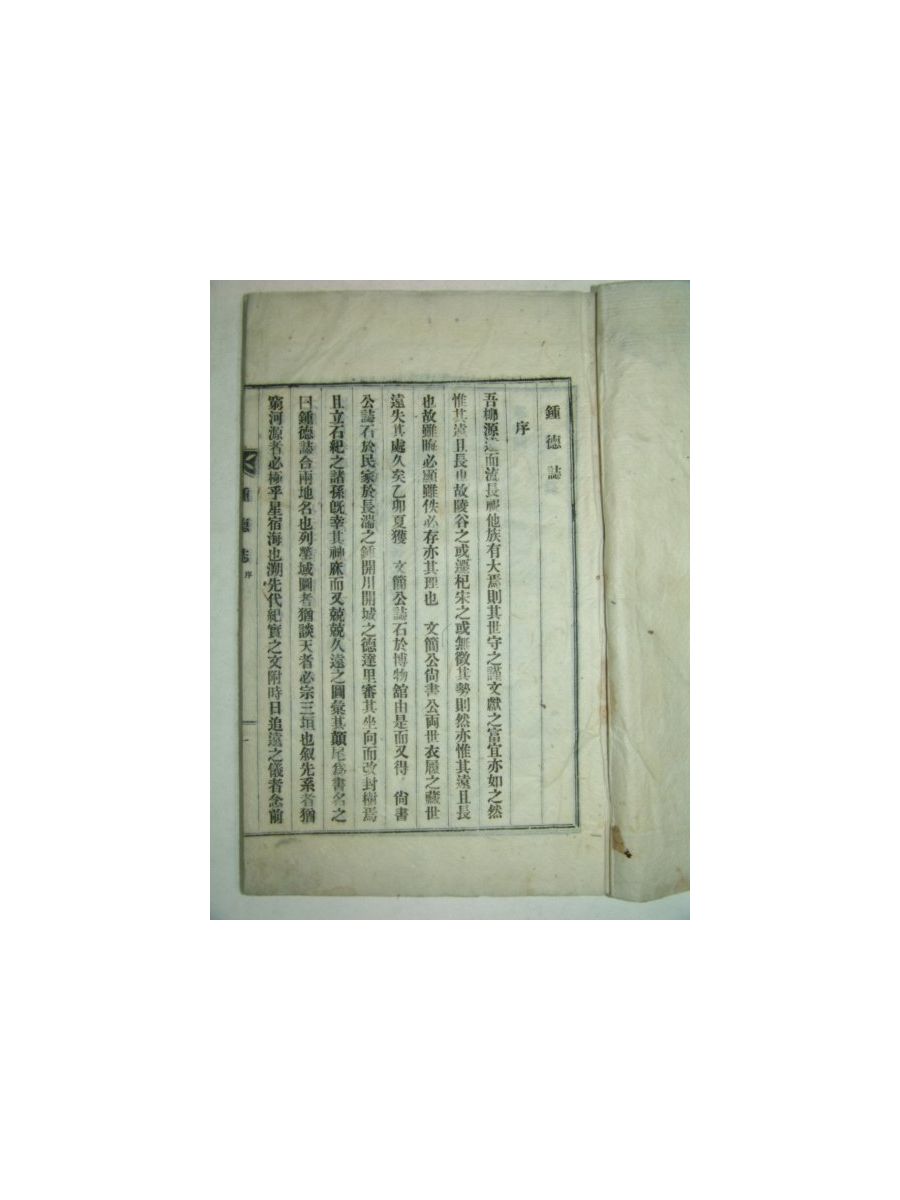 鍾德誌
序
吾柳源遠而流長視他族有大焉則其世守之謹文獻之富宜亦如之然
惟其遠且長也故陵谷之或遷杞宋之或無徵其勢則然亦惟其遠且長
也故雖晦必顯雖佚必存亦其理也 文簡公尙書公兩世衣履之藏世
遠失其處久矣乙卯夏獲 文簡公誌石於博物館由是而又得 尙書
公誌石於民家於長湍之鍾開川開城之德達里審其坐向而改封樹焉
且立石紀之諸孫旣幸其神庥而又兢兢久遠之圖彙其顚尾爲書名之
曰鍾德誌合兩地名也列塋域圖者猶談天者必宗三垣也叙先系者猶
窮河源者必極乎星宿海也溯先代紀實之文附時日追遠之儀者念前
鍾德誌 序 一